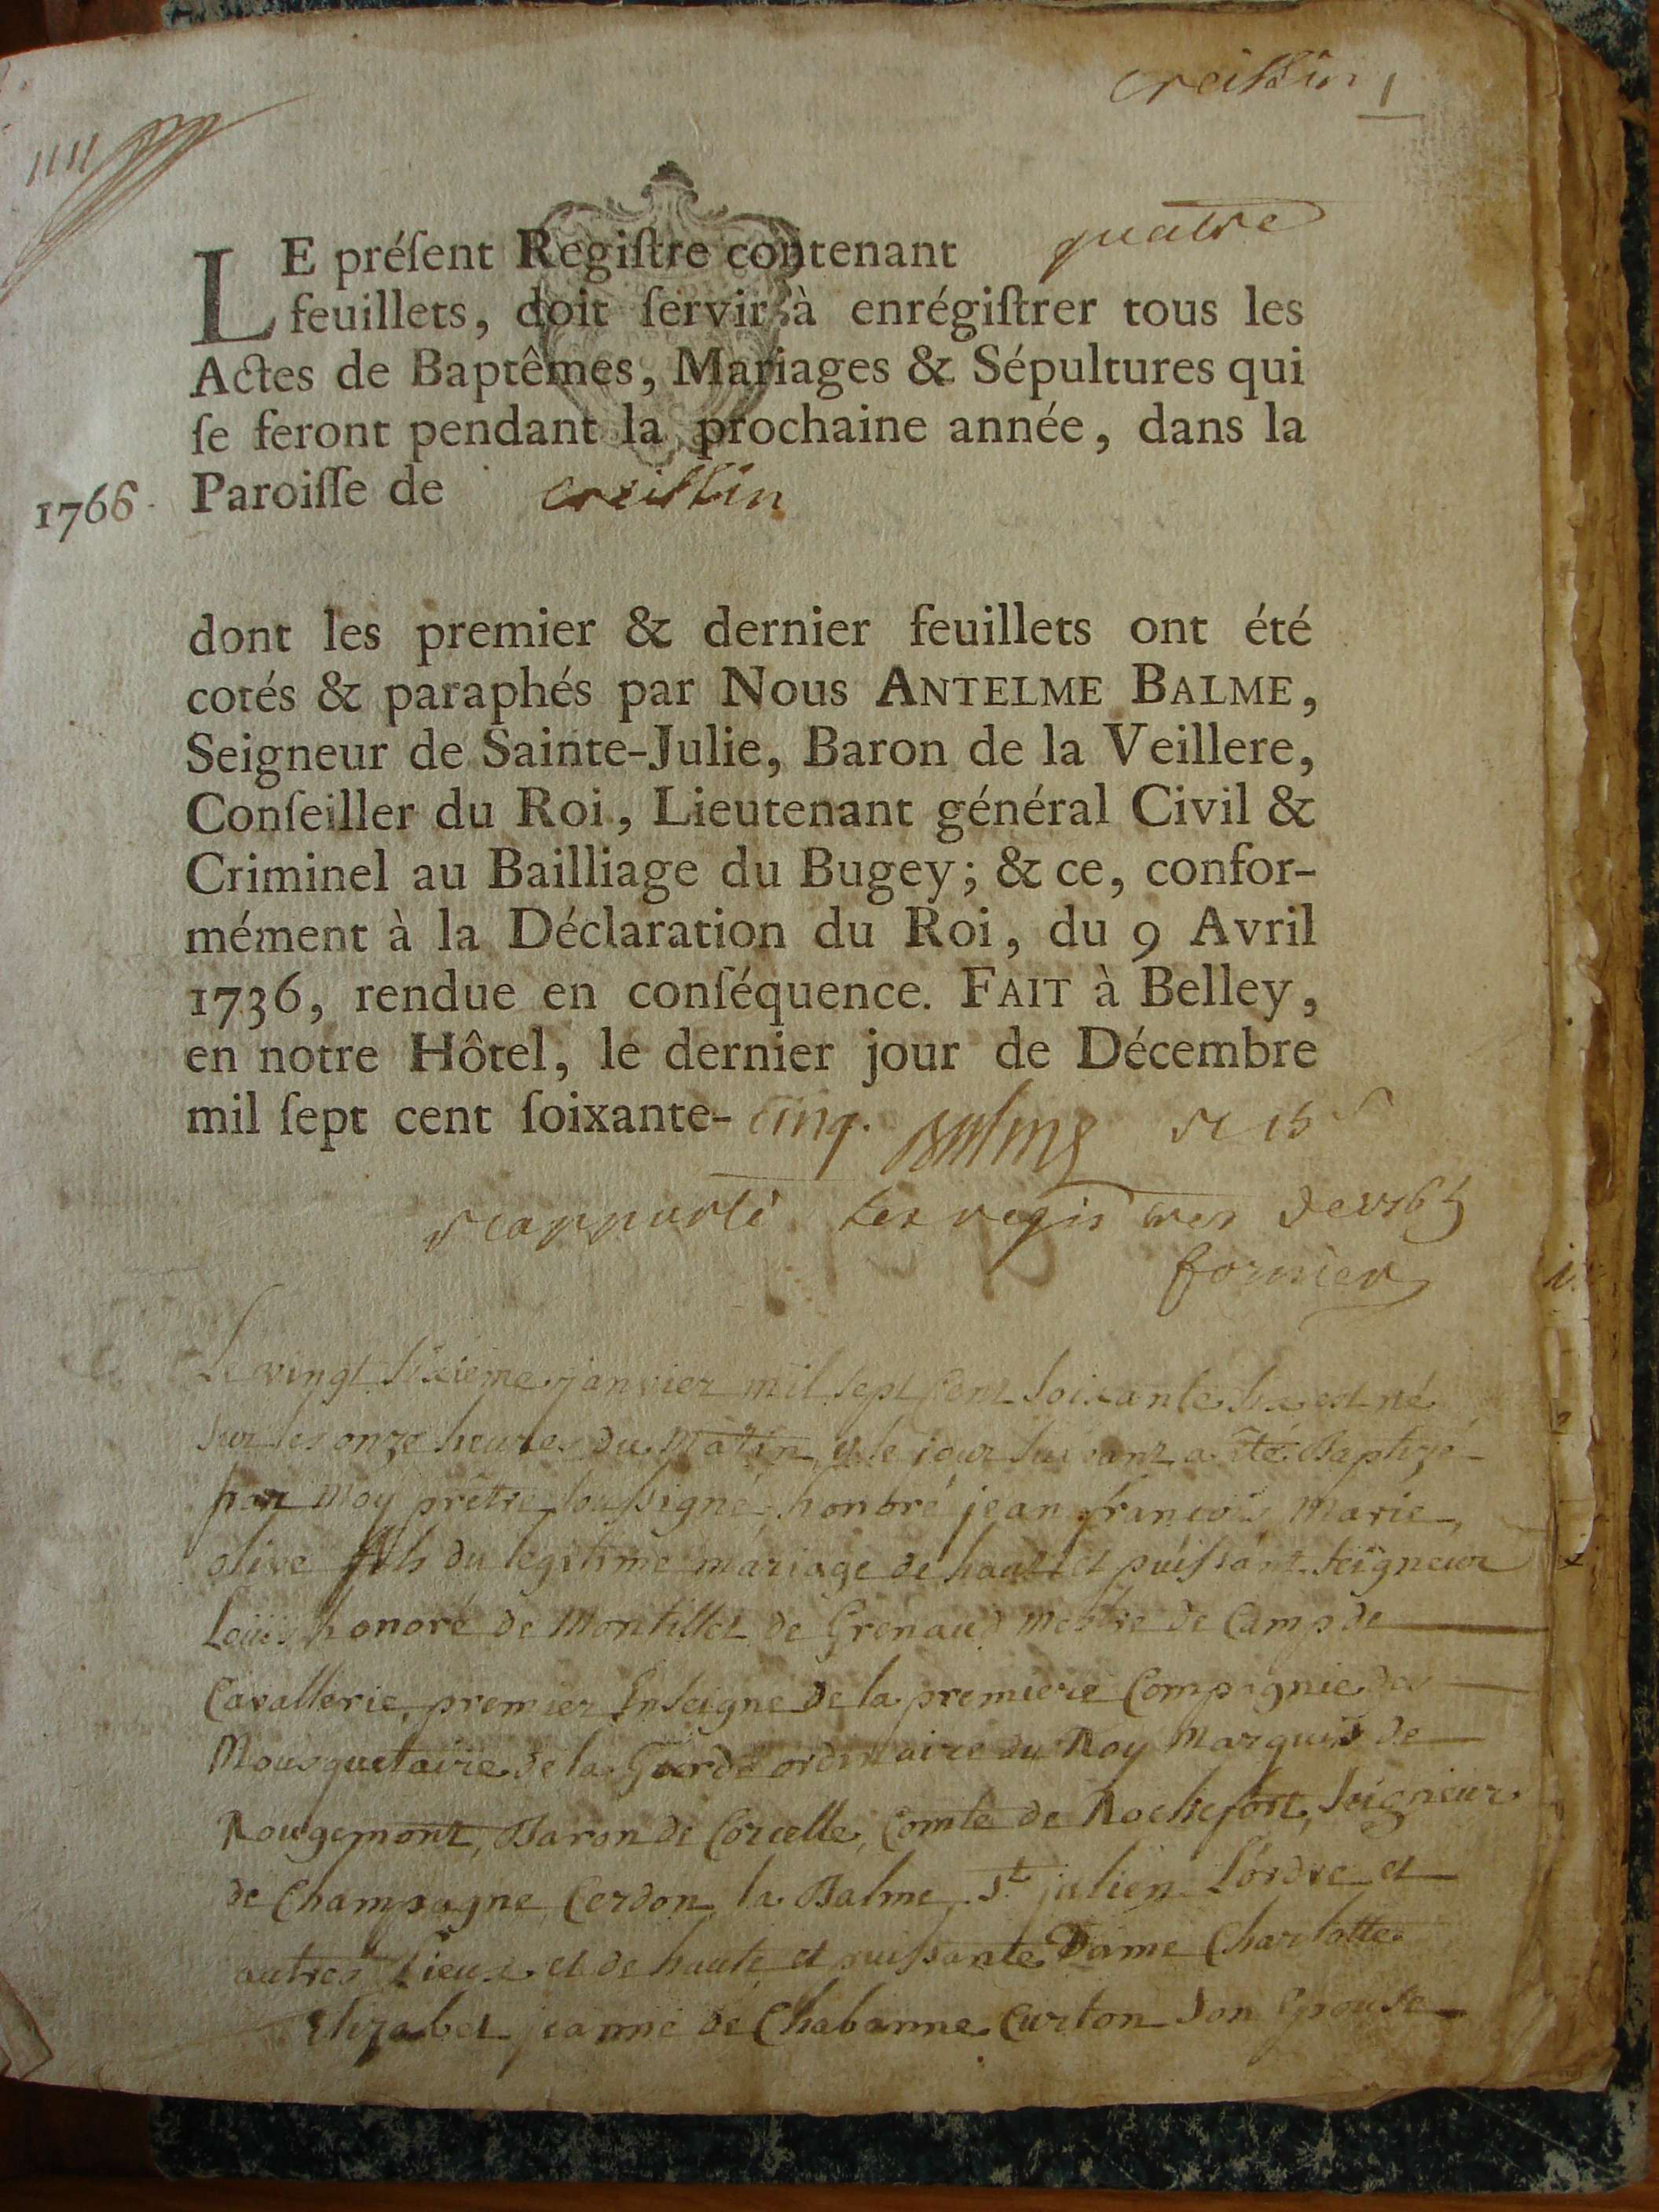 creistin 1
1111
LE préſent Regiſtre contenant quatre
feuillets, doit ſervir à enrégiſtrer tous les
Actes de Baptêmes, Mariages & Sépultures qui
ſe feront pendant la prochaine année, dans la
1766. Paroiſſe de creistin
dont les premier & dernier feuillets ont été
cotés & paraphés par Nous ANTELME BALME,
Seigneur de Sainte-Julie, Baron de la Veillere,
Conſeiller du Roi, Lieutenant général Civil &
Criminel au Bailliage du Bugey; & ce, confor-
mément à la Déclaration du Roi, du 9 Avril
1736, rendue en conſéquence. FAIT à Belley,
en notre Hôtel, le dernier jour de Décembre
mil ſept cent ſoixante-cinq. Balme
rapporté les registres de 1765
fornier
Le vingt sixieme janvier mil sept cent soixante six est né
sur les onze heures du matin, et le jour suivant a été Baptizé
par moy prêtre soussigné honoré jean françois marie
olive fils du legitime mariage de haut et puissant seigneur
Loüis honoré de Montillet de Grenaud mestre de Camp de
Cavallerie, premier Enseigne de la premiere Compagnie des
Mousquetaire de la Garde ordinaire du Roy Marquis de
Rougemont, Baron de Corcelle, Comte de Rochefort, seigneur
de Champagne Cerdon la Balme, St julien L'ordre et
autres Lieux et de haute et puissante Dame Charlotte
Elizabet jeanne de Chabanne Curton son Epouse